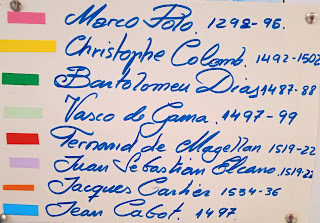 Marco Polo. 1298-96.
Christophe Colomb. 1492-1502
Bartolomeu Dias 1487-88
Vasco de Gama. 1497-99
Fernand de Magellan 1519-22
Juan Sebastian Elcano. 1519-22
Jacques Cartier 1534-36
Jean Cabot. 1497